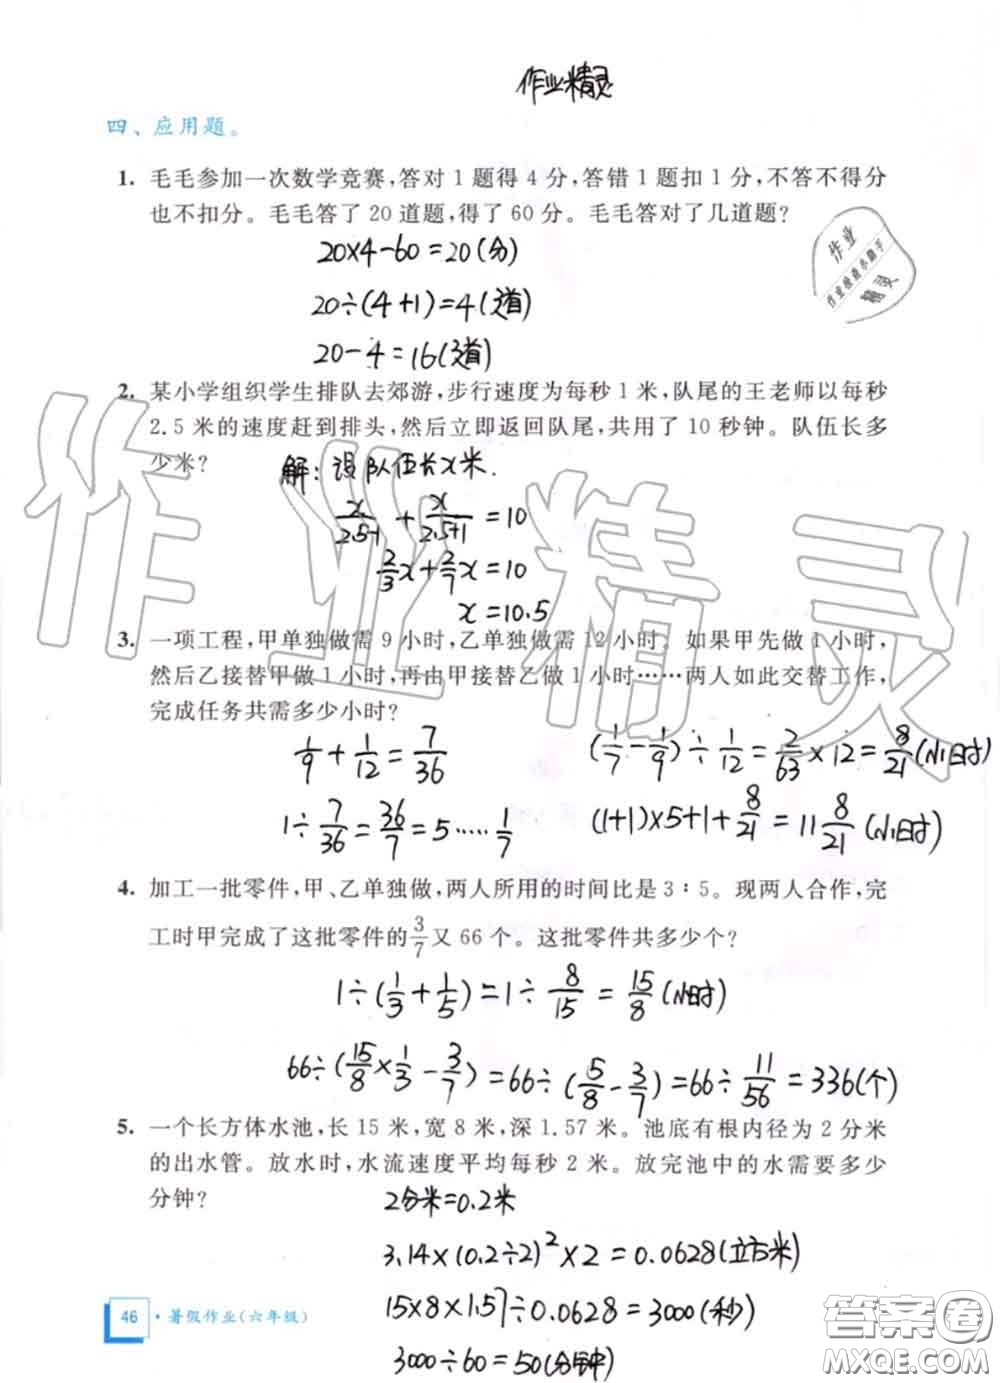 作业精灵
四、应用题。
1. 毛毛参加一次数学竞赛,答对 1 题得 4 分,答错 1 题扣 1 分,不答不得分
也不扣分。毛毛答了 20 道题,得了 60 分。毛毛答对了几道题?
作业
作业检查小助手
精灵
20×4-60=20(分)
20÷(4+1)=4(道)
20-4=16(道)
2. 某小学组织学生排队去郊游,步行速度为每秒 1 米,队尾的王老师以每秒
2.5 米的速度赶到排头,然后立即返回队尾,共用了 10 秒钟。队伍长多
少米?
解:设队伍长x米.
x/(2.5-1) + x/(2.5+1) =10
2/3x+2/7x=10
x=10.5
作业精灵
3. 一项工程,甲单独做需 9 小时,乙单独做需 12 小时。如果甲先做 1 小时,
然后乙接替甲做 1 小时,再由甲接替乙做 1 小时……两人如此交替工作,
完成任务共需多少小时?
1/9+1/12=7/36
1÷7/36=36/7=5……1/7
(1/7-1/9)÷1/12=2/63×12=8/21(小时)
(1+1)×5+1+8/21=11 8/21(小时)
4. 加工一批零件,甲、乙单独做,两人所用的时间比是 3∶5。现两人合作,完
工时甲完成了这批零件的3/7又 66 个。这批零件共多少个?
1÷(1/3+1/5)=1÷8/15=15/8(小时)
66÷(15/8×1/3-3/7)=66÷(5/8-3/7)=66÷11/56=336(个)
5. 一个长方体水池,长 15 米,宽 8 米,深 1.57 米。池底有根内径为 2 分米
的出水管。放水时,水流速度平均每秒 2 米。放完池中的水需要多少
分钟?
2分米=0.2米
3.14×(0.2÷2)²×2=0.0628(立方米)
15×8×1.57÷0.0628=3000(秒)
3000÷60=50(分钟)
46 ·暑假作业(六年级)
答案圈
MXQE.COM